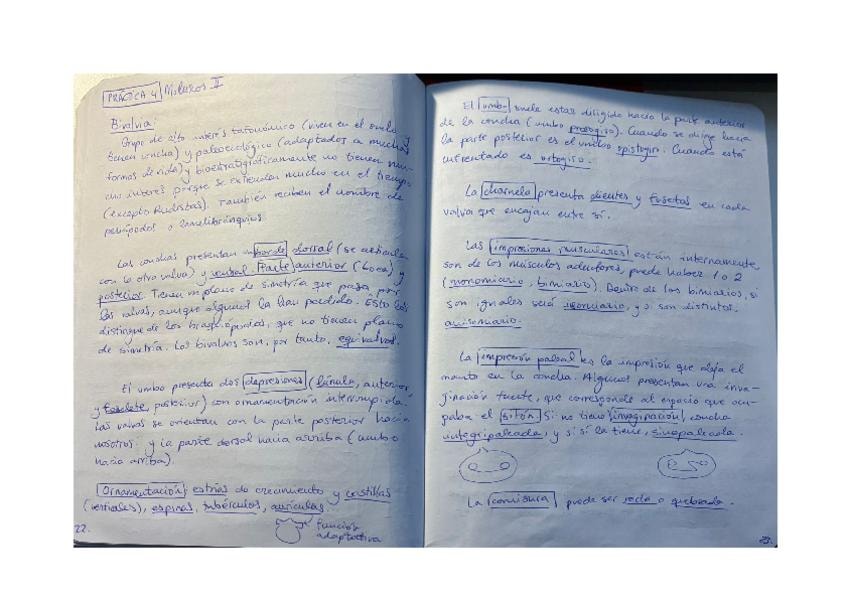 PRÁCTICA 4 Moluscos II
Bivalvia:
Grupo de alto interés tafonómico (viven en el suelo y
tienen concha) y paleoecológico (adaptados a muchas
formas de vida) y bioestratigráficamente no tienen mu-
cho interés porque se extienden mucho en el tiempo
(excepto Rudistas). También reciben el nombre de
pelecípodos o lamelibranquios.
Las conchas presentan un borde dorsal (se articula
con la otra valva) y ventral. Parte anterior (boca) y
posterior. Tienen un plano de simetría que pasa por
las valvas, aunque algunos la han perdido. Esto los
distingue de los braquiópodos, que no tienen plano
de simetría. Los bivalvos son, por tanto, equivalvos.
El umbo presenta dos depresiones (lúnula, anterior,
y escudete, posterior) con ornamentación interrumpida.
Las valvas se orientan con la parte posterior hacia
nosotros y la parte dorsal hacia arriba (umbo
hacia arriba).
Ornamentación: estrías de crecimiento y costillas
(ventrales), espinas, tubérculos, aurículas
función
adaptativa
22.
El umbo suele estar dirigido hacia la parte anterior
de la concha (umbo prosogiro). Cuando se dirige hacia
la parte posterior es el umbo opistogiro. Cuando está
enfrentado es ortogiro.
La charnela presenta dientes y fosetas en cada
valva que encajan entre sí.
Las impresiones musculares están internamente,
son de los músculos aductores, puede haber 1 o 2
(monomiario, bimiario). Dentro de los bimiarios, si
son iguales será isomiario, y si son distintos,
anisomiario.
La impresión paleal es la impresión que deja el
manto en la concha. Algunos presentan una inva-
ginación fuerte, que corresponde al espacio que ocu-
paba el sifón. Si no tiene invaginación, concha
integripaleada, y si sí la tiene, sinupaleada.
La comisura puede ser recta o quebrada.
23.